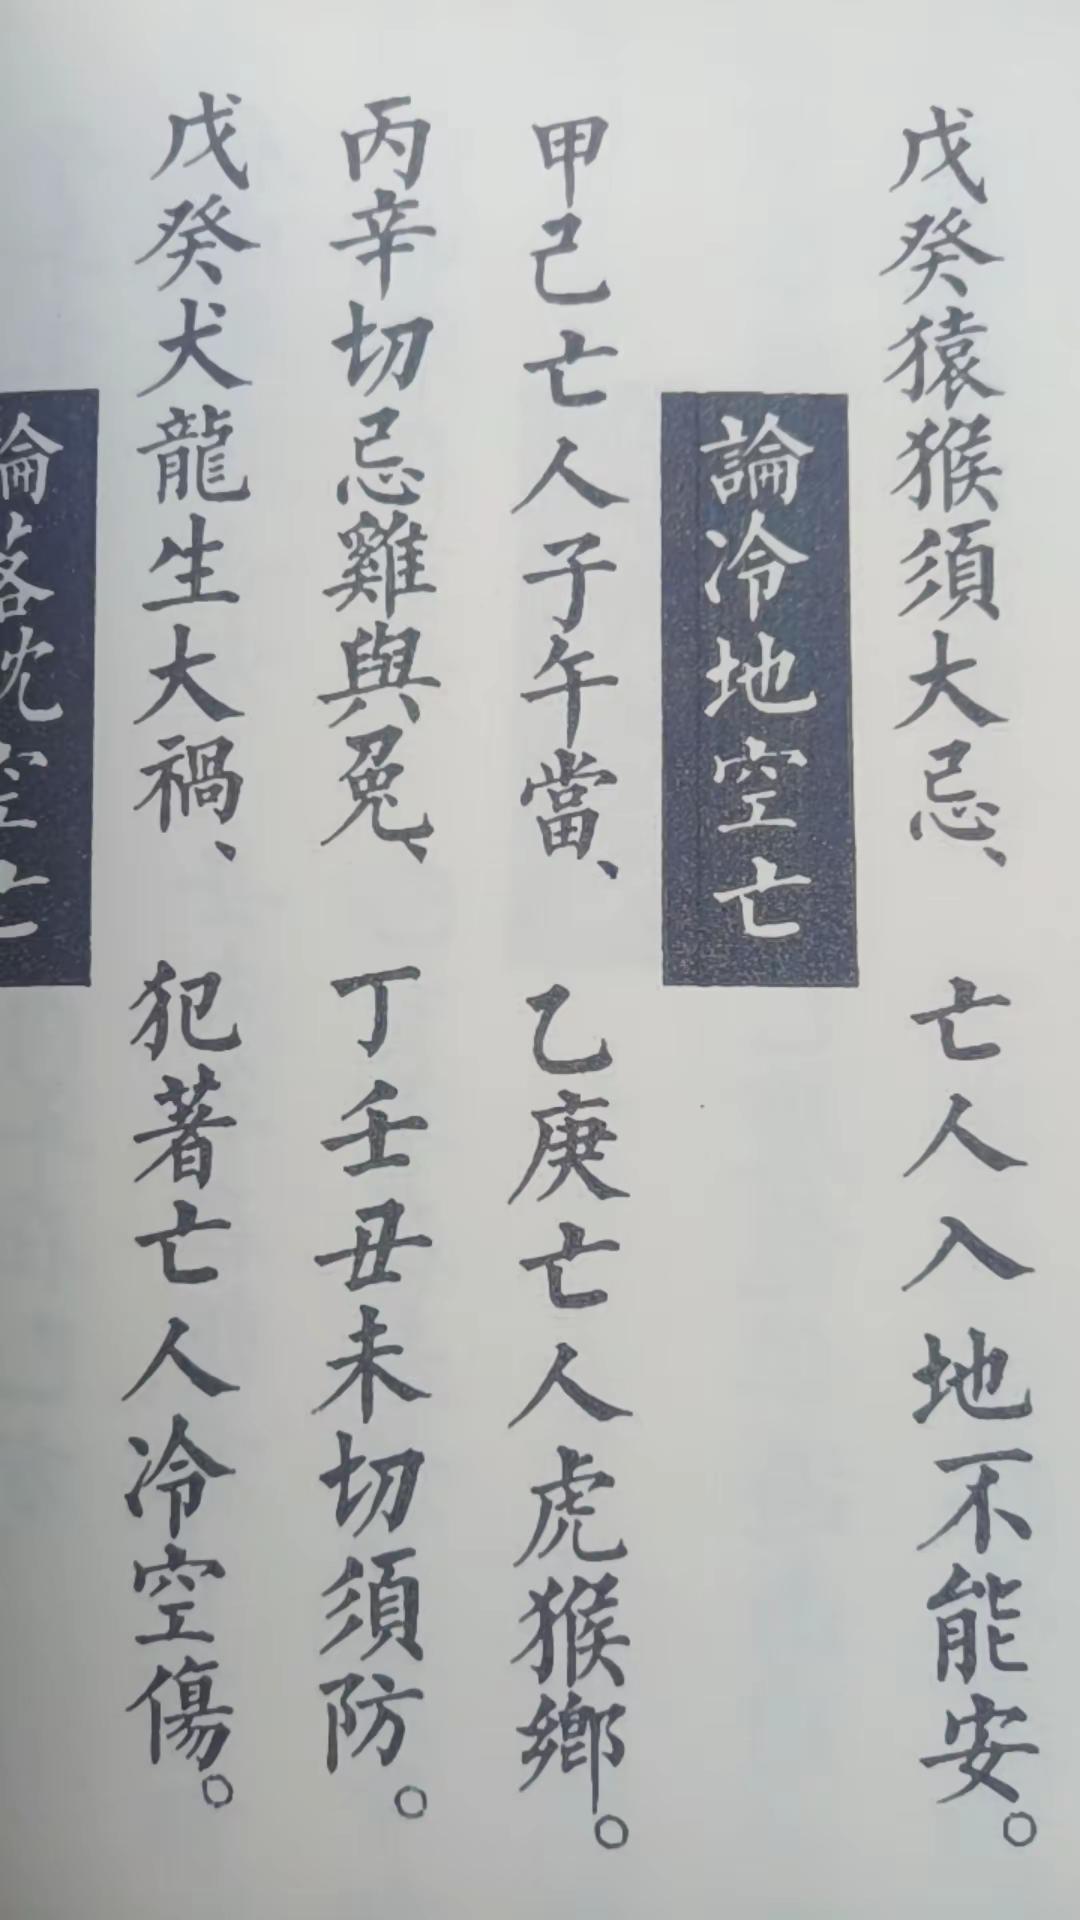 戊癸猿猴須大忌、亡人入地不能安。
論冷地空亡
甲己亡人子午當、乙庚亡人虎猴鄉。
丙辛切忌雞與兔、丁壬丑未切須防。
戊癸犬龍生大禍、犯著亡人冷空傷。
論落沈空亡